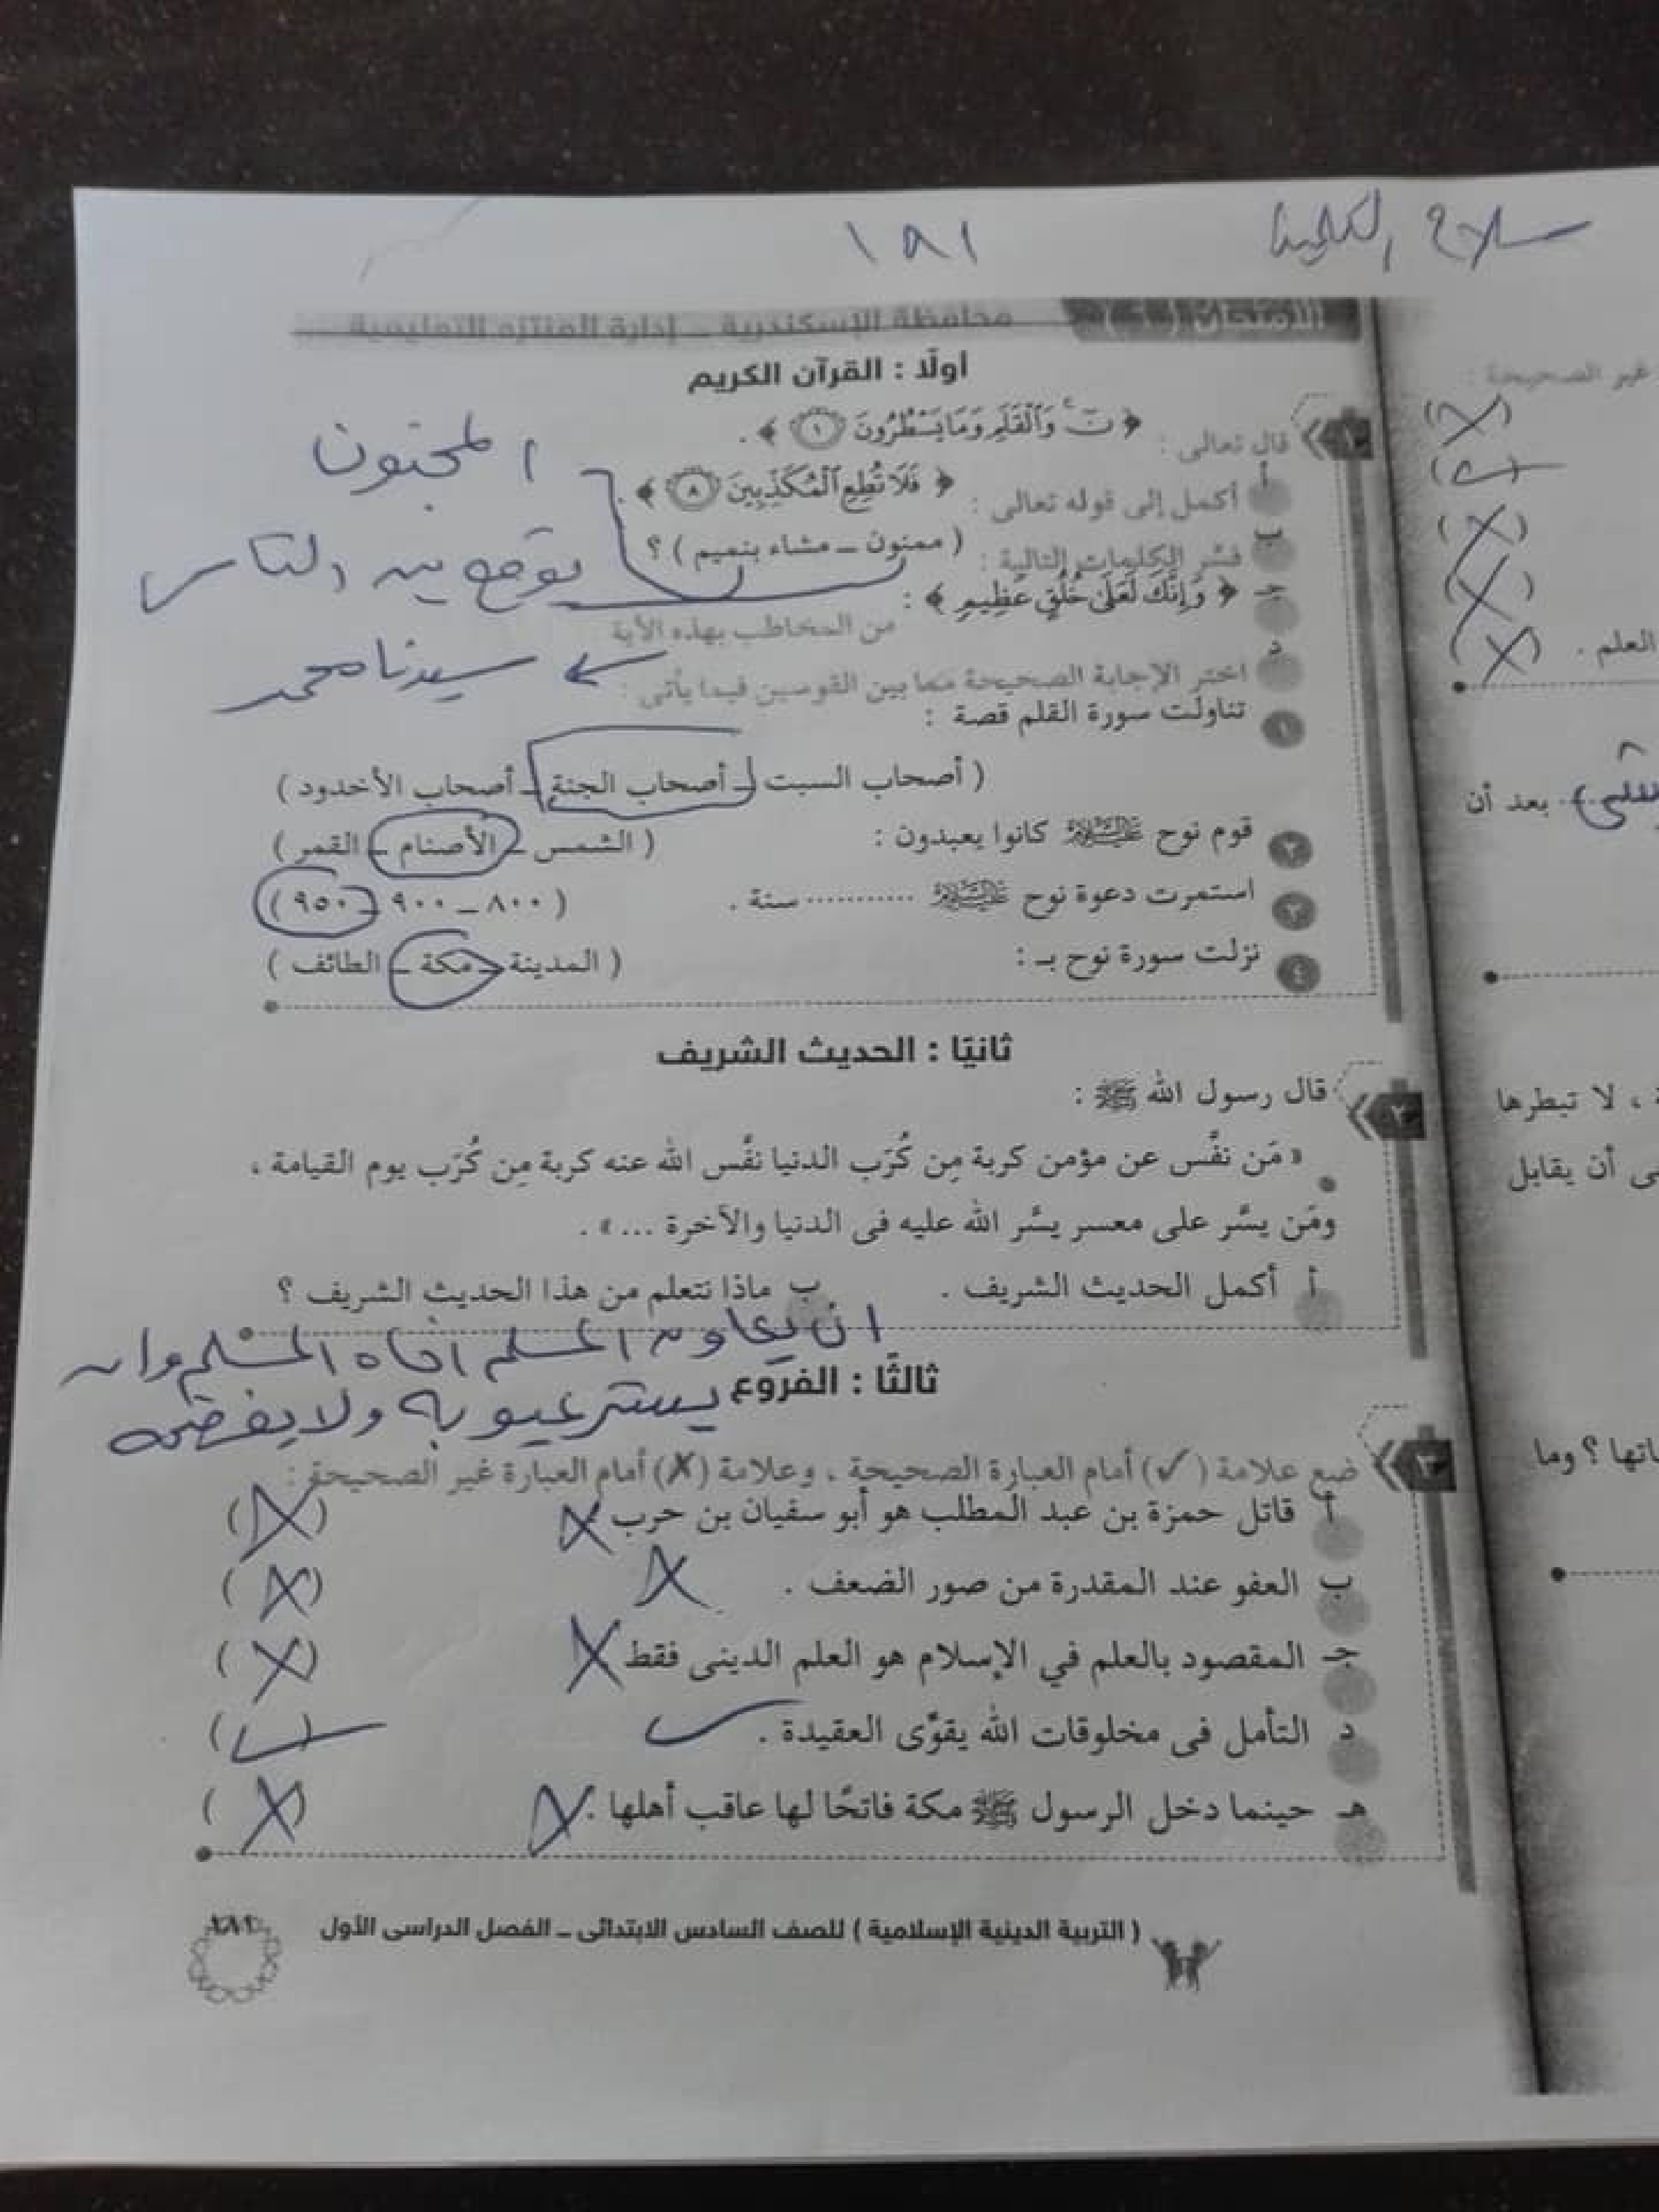 سلاح التلميذ
١٨١
محافظة الإسكندرية – إدارة المنتزه التعليمية
أولًا : القرآن الكريم
١ قال تعالى : ﴿ نٓ وَٱلْقَلَمِ وَمَا يَسْطُرُونَ ١ ﴾ .
أ أكمل إلى قوله تعالى : ﴿ فَلَا تُطِعِ ٱلْمُكَذِّبِينَ ٨ ﴾ .
ب فسّر الكلمات التالية : ( ممنون – مشاء بنميم ) ؟
يوقع بين الناس
جـ ﴿ وَإِنَّكَ لَعَلَىٰ خُلُقٍ عَظِيمٍ ﴾ :
من المخاطب بهذه الآية
سيدنا محمد
د اختر الإجابة الصحيحة مما بين القوسين فيما يأتى :
١ تناولت سورة القلم قصة :
( أصحاب السبت – أصحاب الجنة – أصحاب الأخدود )
٢ قوم نوح عليه السلام كانوا يعبدون : ( الشمس – الأصنام – القمر )
٣ استمرت دعوة نوح عليه السلام ............ سنة . ( ٨٠٠ – ٩٠٠ – ٩٥٠ )
٤ نزلت سورة نوح بـ : ( المدينة – مكة – الطائف )
ثانيًا : الحديث الشريف
٢ قال رسول الله ﷺ :
« مَن نفَّس عن مؤمن كربة مِن كُرَب الدنيا نفَّس الله عنه كربة مِن كُرَب يوم القيامة ،
ومَن يسَّر على معسر يسَّر الله عليه فى الدنيا والآخرة ... » .
أ أكمل الحديث الشريف . ب ماذا نتعلم من هذا الحديث الشريف ؟
ان يعاون المسلم اخاه المسلم وان
يستر عيوبه ولا يفضحه
ثالثًا : الفروع
٣ ضع علامة (✓) أمام العبارة الصحيحة ، وعلامة (✗) أمام العبارة غير الصحيحة :
أ قاتل حمزة بن عبد المطلب هو أبو سفيان بن حرب . ✗ (✗)
ب العفو عند المقدرة من صور الضعف . ✗ (✗)
جـ المقصود بالعلم في الإسلام هو العلم الدينى فقط ✗ (✗)
د التأمل فى مخلوقات الله يقوِّى العقيدة . ✓ (✓)
هـ حينما دخل الرسول ﷺ مكة فاتحًا لها عاقب أهلها . ✗ (✗)
( التربية الدينية الإسلامية ) للصف السادس الابتدائى – الفصل الدراسى الأول
غير الصحيحة :
(✗)
(✓)
(✗)
(✗)
العلم . (✗)
بعد أن
، لا تبطرها
أن يقابل
؟ وما